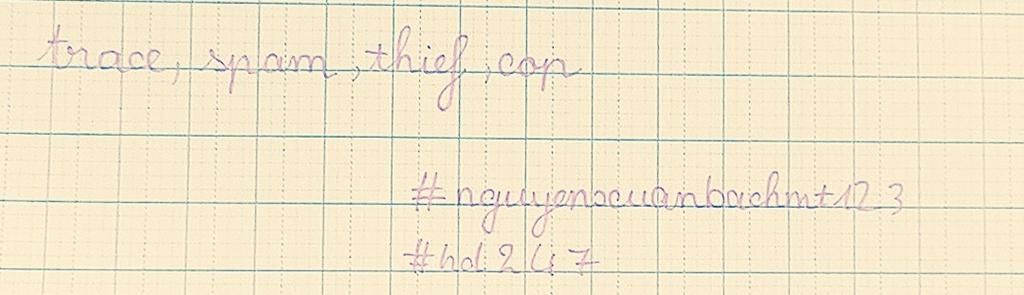 trace, spam, thief, cop
#nguyenxuanbachmt123
#hd247